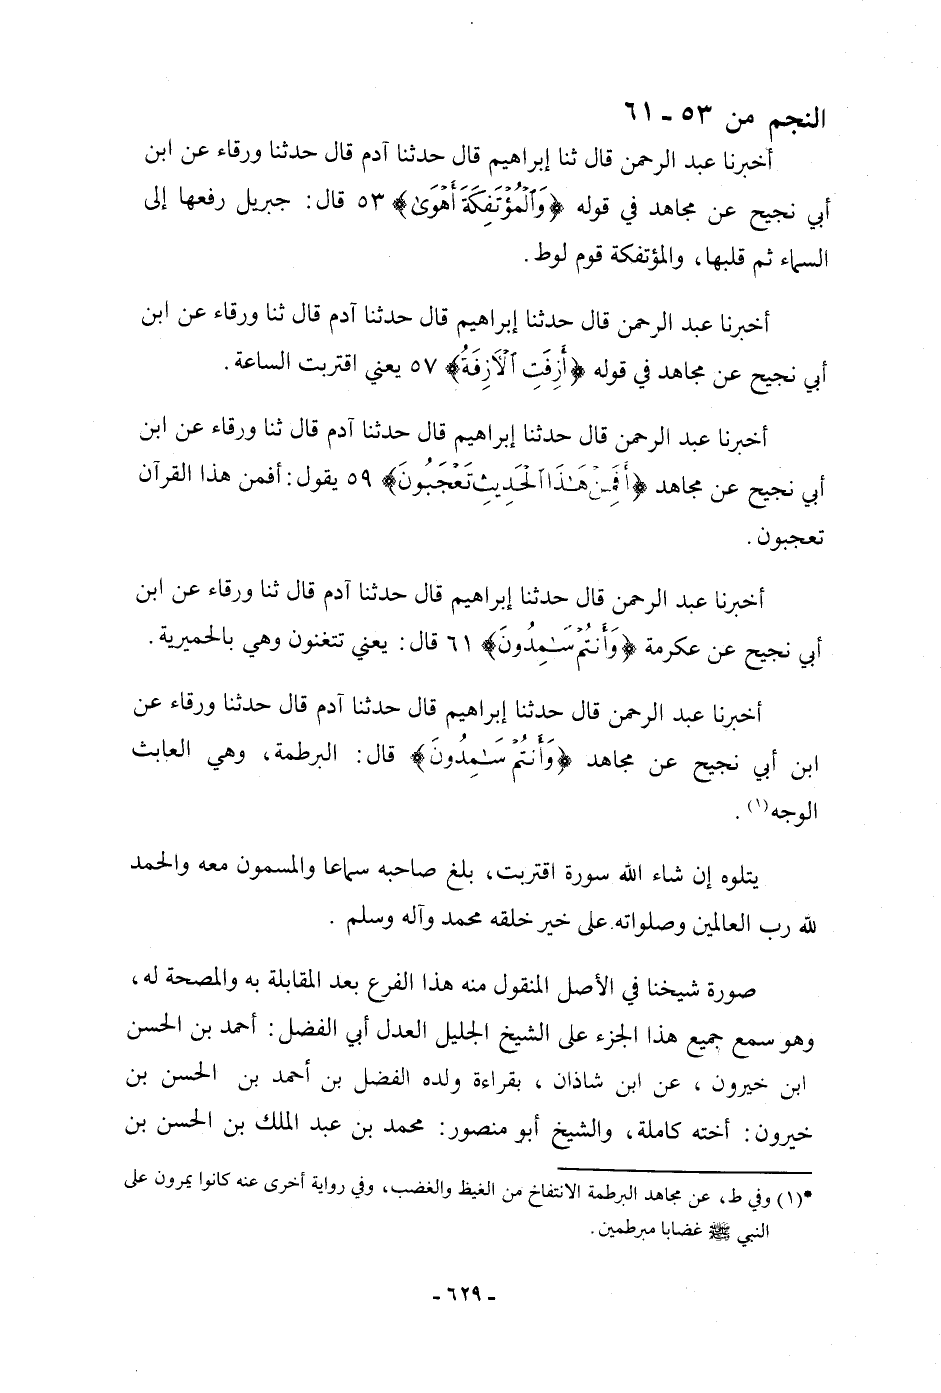 النجم من ٥٣ ـ ٦١
أخبرنا عبد الرحمن قال ثنا إبراهيم قال حدثنا آدم قال حدثنا ورقاء عن ابن
أبي نجيح عن مجاهد في قوله ﴿وَٱلْمُؤْتَفِكَةَ أَهْوَىٰ﴾ ٥٣ قال: جبريل رفعها إلى
السماء ثم قلبها، والمؤتفكة قوم لوط.
أخبرنا عبد الرحمن قال حدثنا إبراهيم قال حدثنا آدم قال ثنا ورقاء عن ابن
أبي نجيح عن مجاهد في قوله ﴿أَزِفَتِ ٱلْآزِفَةُ﴾ ٥٧ يعني اقتربت الساعة.
أخبرنا عبد الرحمن قال حدثنا إبراهيم قال حدثنا آدم قال ثنا ورقاء عن ابن
أبي نجيح عن مجاهد ﴿أَفَمِنْ هَـٰذَا ٱلْحَدِيثِ تَعْجَبُونَ﴾ ٥٩ يقول: أفمن هذا القرآن
تعجبون.
أخبرنا عبد الرحمن قال حدثنا إبراهيم قال حدثنا آدم قال ثنا ورقاء عن ابن
أبي نجيح عن عكرمة ﴿وَأَنتُمْ سَـٰمِدُونَ﴾ ٦١ قال: يعني تتغنون وهي بالحميرية.
أخبرنا عبد الرحمن قال حدثنا إبراهيم قال حدثنا آدم قال حدثنا ورقاء عن
ابن أبي نجيح عن مجاهد ﴿وَأَنتُمْ سَـٰمِدُونَ﴾ قال: البرطمة، وهي العابث
الوجه(١).
يتلوه إن شاء الله سورة اقتربت، بلغ صاحبه سماعا والمسمون معه والحمد
لله رب العالمين وصلواته على خير خلقه محمد وآله وسلم.
صورة شيخنا في الأصل المنقول منه هذا الفرع بعد المقابلة به والمصحة له،
وهو سمع جميع هذا الجزء على الشيخ الجليل العدل أبي الفضل: أحمد بن الحسن
ابن خيرون، عن ابن شاذان، بقراءة ولده الفضل بن أحمد بن الحسن بن
خيرون: أخته كاملة، والشيخ أبو منصور: محمد بن عبد الملك بن الحسن بن
*(١) وفي ط، عن مجاهد البرطمة الانتفاخ من الغيظ والغضب، وفي رواية أخرى عنه كانوا يمرون على
النبي ﷺ غضابا مبرطمين.
ـ ٦٢٩ ـ